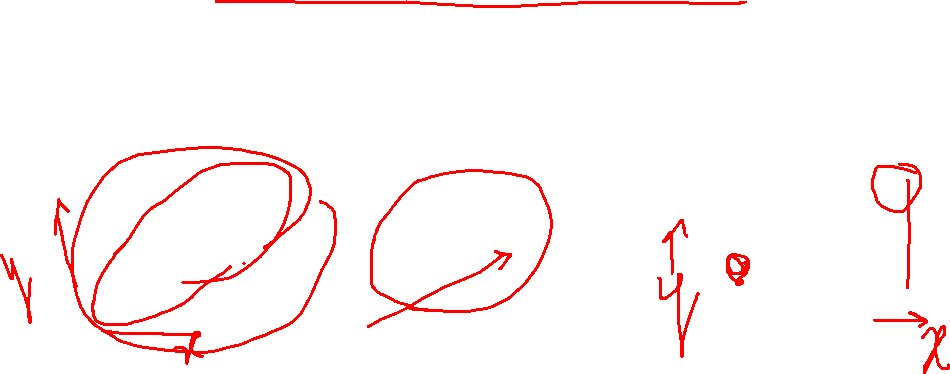 y x y x